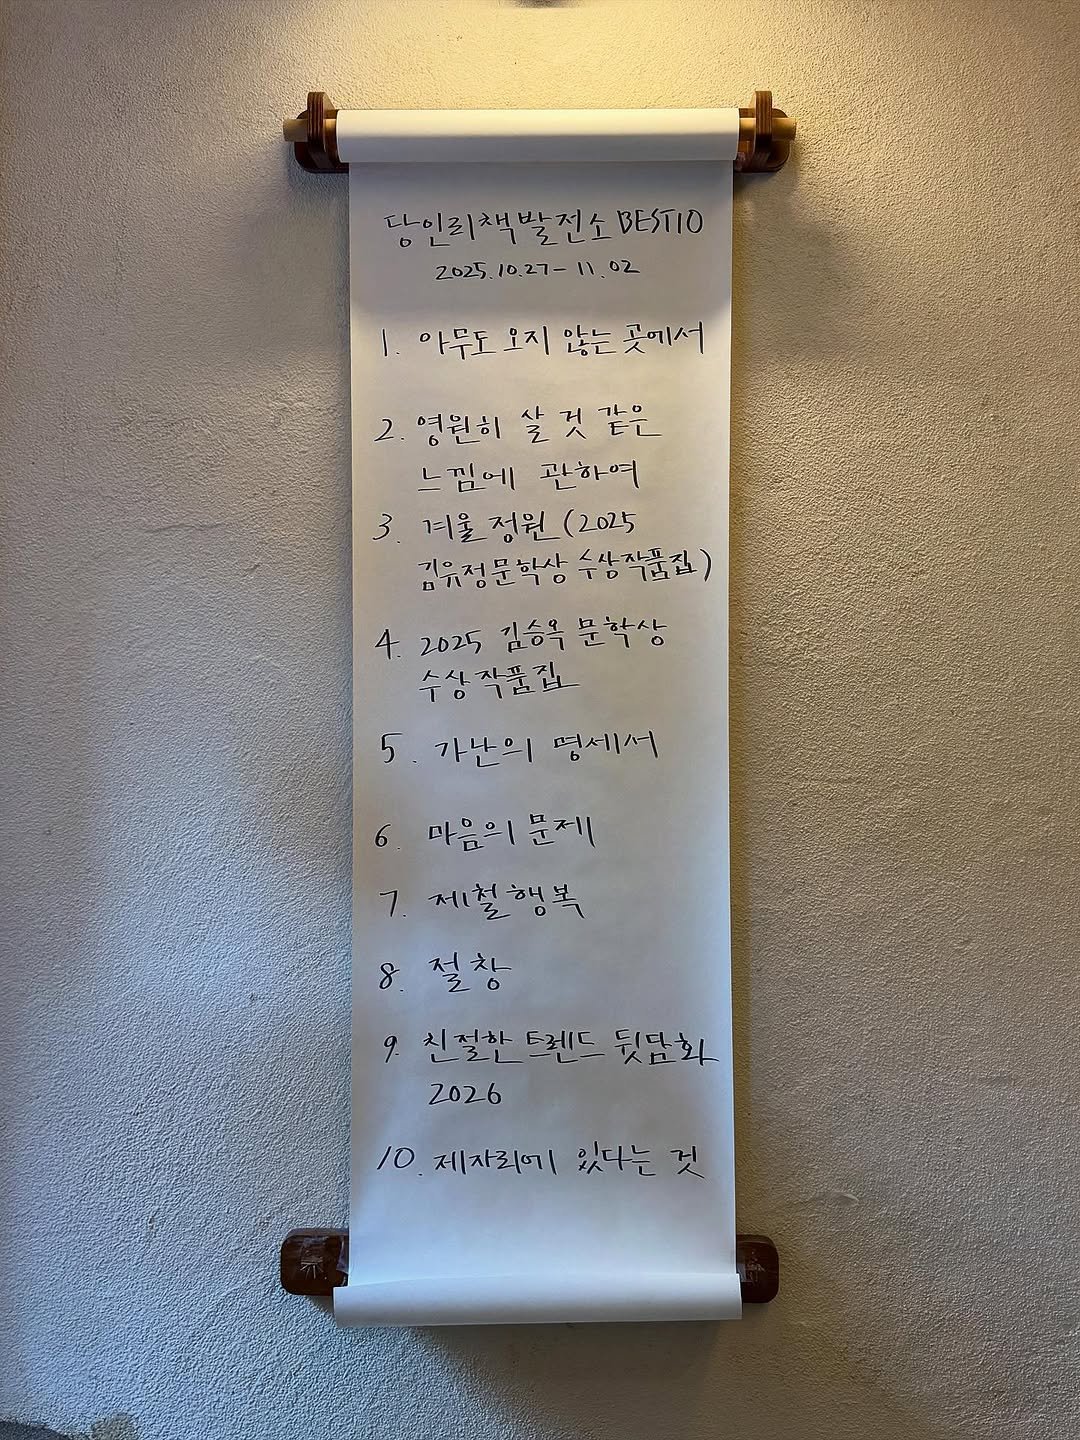 당인리책발전소 BEST10
2025.10.27 - 11.02
1. 아무도 오지 않는 곳에서
2. 영원히 살 것 같은
느낌에 관하여
3. 겨울 정원 (2025
김유정문학상 수상작품집)
4. 2025 김승옥 문학상
수상작품집
5. 가난의 명세서
6. 마음의 문제
7. 제철 행복
8. 절창
9. 친절한 트렌드 뒷담화
2026
10. 제자리에 있다는 것